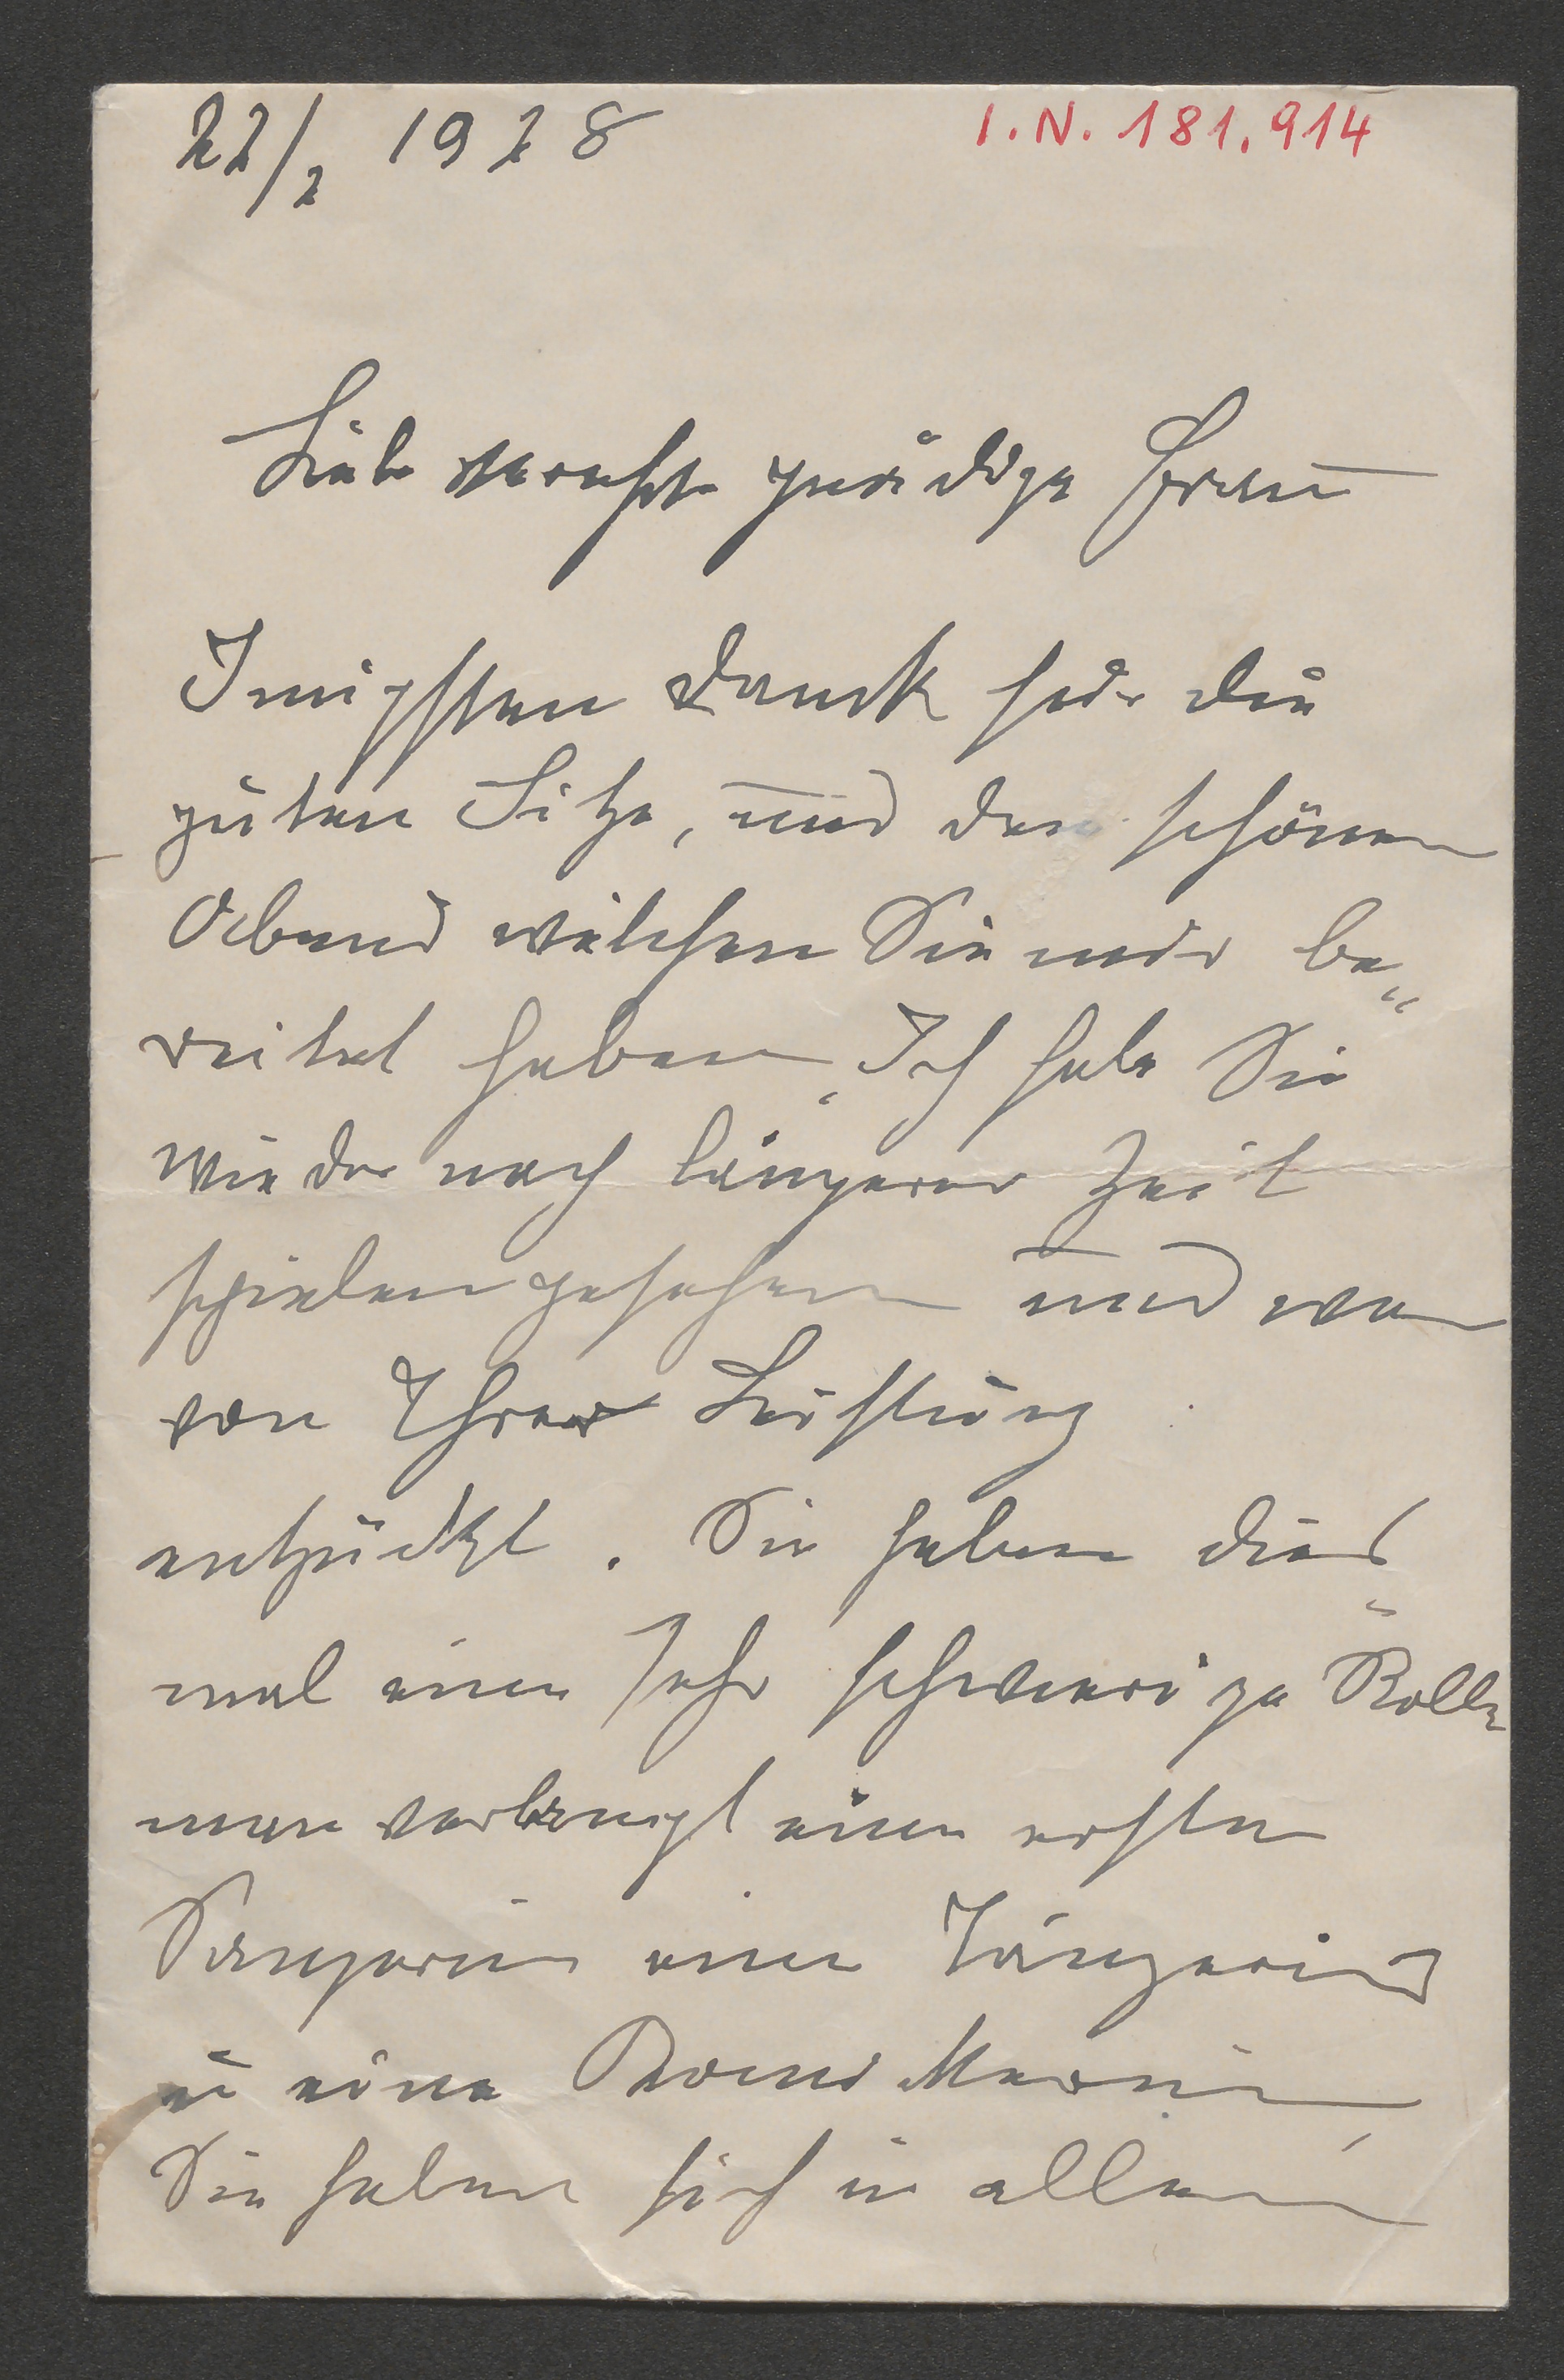 22/2 1928
I.N. 181.914
Liebe verehrte gnädige Frau
Innigsten Dank für die
guten Sitze, und den schönen
Abend welchen Sie mir be„
reitet haben, Ich habe Sie
wieder nach längerer Zeit
spielen gesehen und war
von Ihrer Leistung
entzückt. Sie haben dies„
mal eine sehr schwierige Rolle
man verlangt eine ersten
Sengerin eine Tänzerin
u eine
Sie haben sich in allem